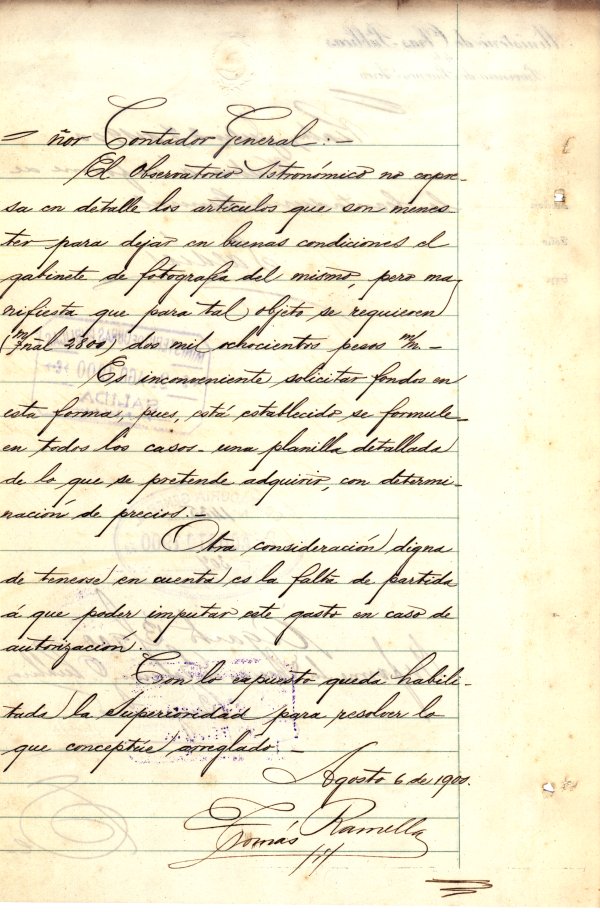 ñor Contador General:-
El Observatorio Astronómico no expre-
sa con detalle los artículos que son menes-
ter para dejar en buenas condiciones el
gabinete de fotografía del mismo, pero ma
nifiesta que para tal objeto se requieren
(m/nal 2800) dos mil ochocientos pesos m/n-
Es inconveniente solicitar fondos en
esta forma, pues, está establecido se formule
en todos los casos- una planilla detallada
de lo que se pretende adquirir, con determi-
nación de precios.-
Otra consideración digna
de tenerse en cuenta es la falta de partida
á que poder imputar este gasto en caso de
autorización.
Con lo expuesto queda habili-
tada la Superioridad para resolver lo
que conceptúe arreglado.-
Agosto 6 de 1900.
Tomás Ramella
Ministerio de Obras Públicas
SALIDA